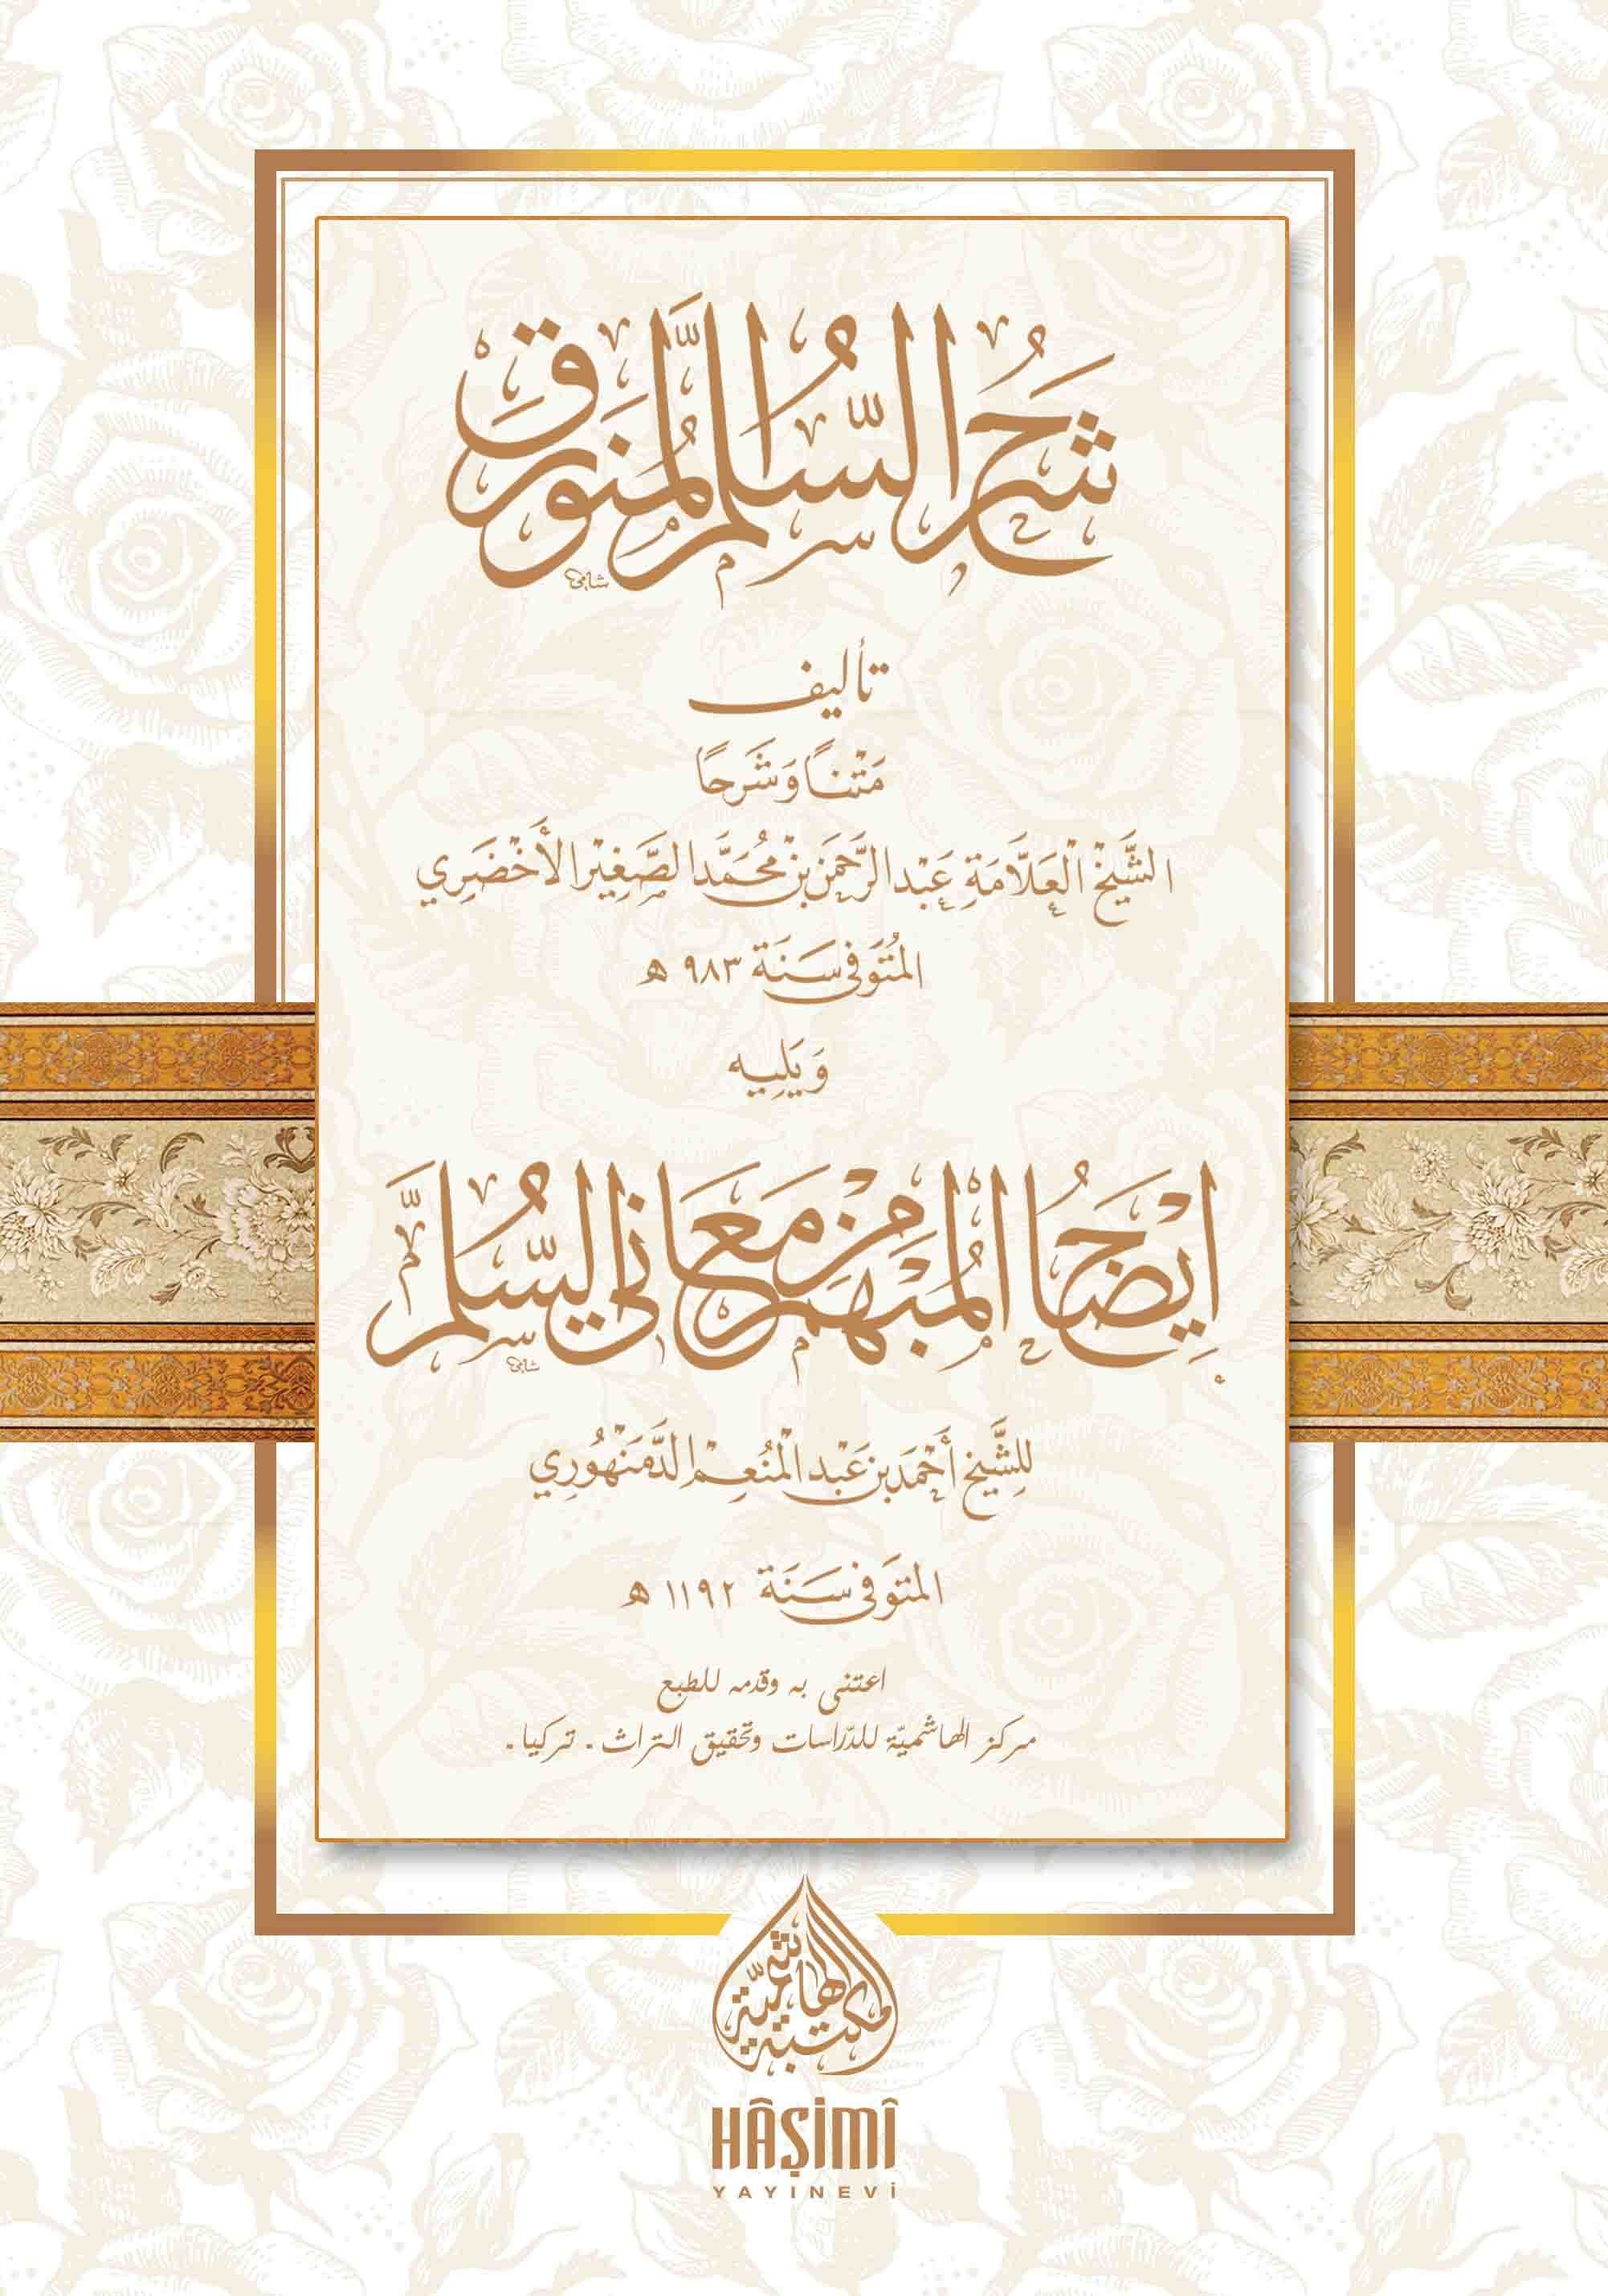 شَرْحُ السُّلَّمِ الْمُنَوْرَقِ
تأليف
مَتْنًا وَشَرحًا
الشَّيْخ الْعَلَّامَةِ عَبْد الرَّحْمَن بْن مُحَمَّد الصَّغِيْر الأَخْضَرِي
المُتَوَفى سَنَة ٩٨٣ ه
وَيَلِيه
إِيْضَاحُ الْمُبْهَمِ مِنْ مَعَانِي السُّلَّمِ
لِلشَّيْخ أَحْمَد بْن عَبْد الْمُنْعِم الدَّمَنْهُورِي
المتوَفى سَنَة ١١٩٢ ه
اعتنى به وقدمه للطبع
مركز الهاشميّة للدّراسات وتحقيق التراث . تركيا .
مكتبة الهاشميّة
HÂŞİMÎ
YAYINEVİ